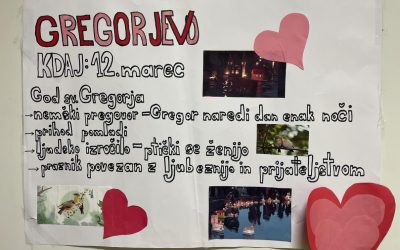 GREGORJEVO
KDAJ: 12. marec
God sv. Gregorja
→nemški pregovor – Gregor naredi dan enak noči
→prihod pomladi
→ljudsko izročilo – ptički se ženijo
→praznik povezan z ljubeznijo in prijateljstvom